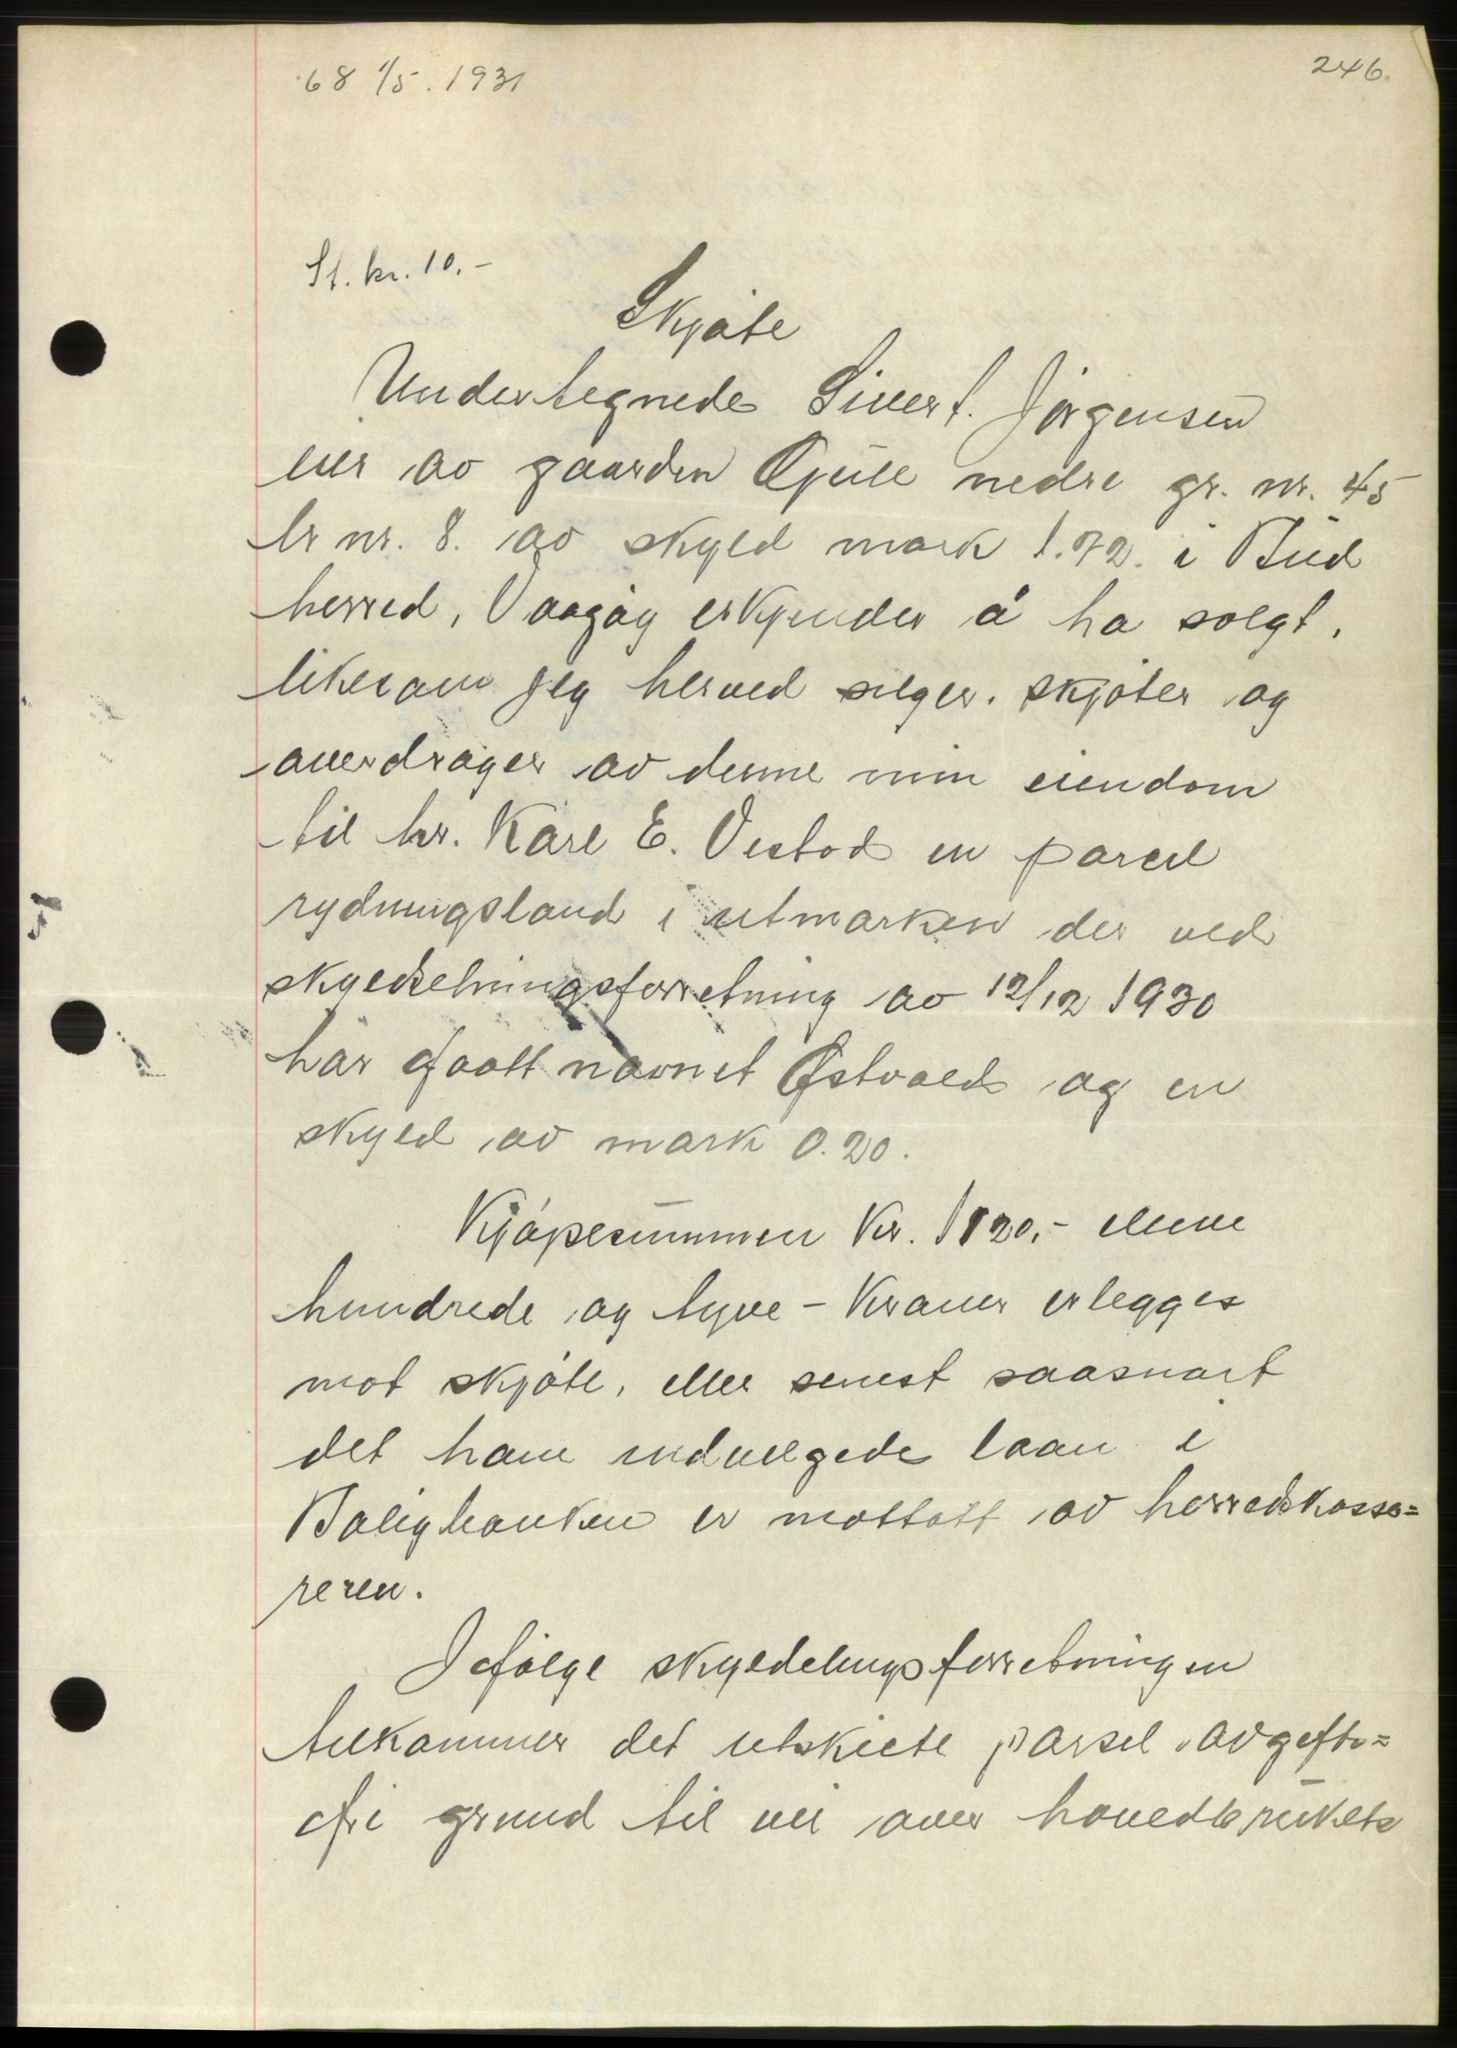 68 1/5. 1931
246.
St. kr. 10.-
Skjøte
Undertegnede Sivert Jørgensen
eier av gaarden Gule nedre gr. nr. 45
br nr. 8. av skyld mark 1.72. i Bud
herred, Vaagøy erkjender å ha solgt,
likesom jeg herved selger, skjøter og
overdrager av denne min eiendom
til hr. Karl E. Vestad en parcel
rydningsland i utmarken der ved
skyldselningsforretning av 12/12 1930
har faatt navnet Østvold og en
skyld av mark 0.20.
Kjøpesummen Kr. 1120,- elleve
hundrede og tyve - Kroner erlegges
mot skjøte, eller senest saasnart
det ham indvilgede laan i
Boligbanken er mottatt av herredskasse=
reren.
Ifølge skyldelingsforretningen
tilkommer det utskilte parsel avgifts=
fri grund til vei over hovedbrukets